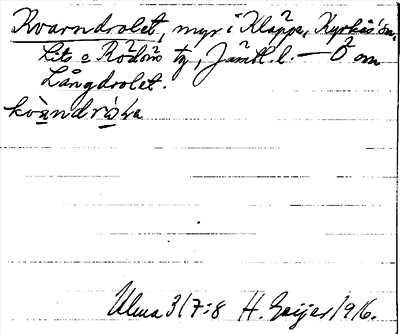 Kvarndrolet, myr i Kläppe, Kyrkås sn.
Lits o Rödöns tg, Jämtl. l. — Ö om
Långdrolet.
kvàndrólɐ
Ulma 317:8 H. Geijer 1916.